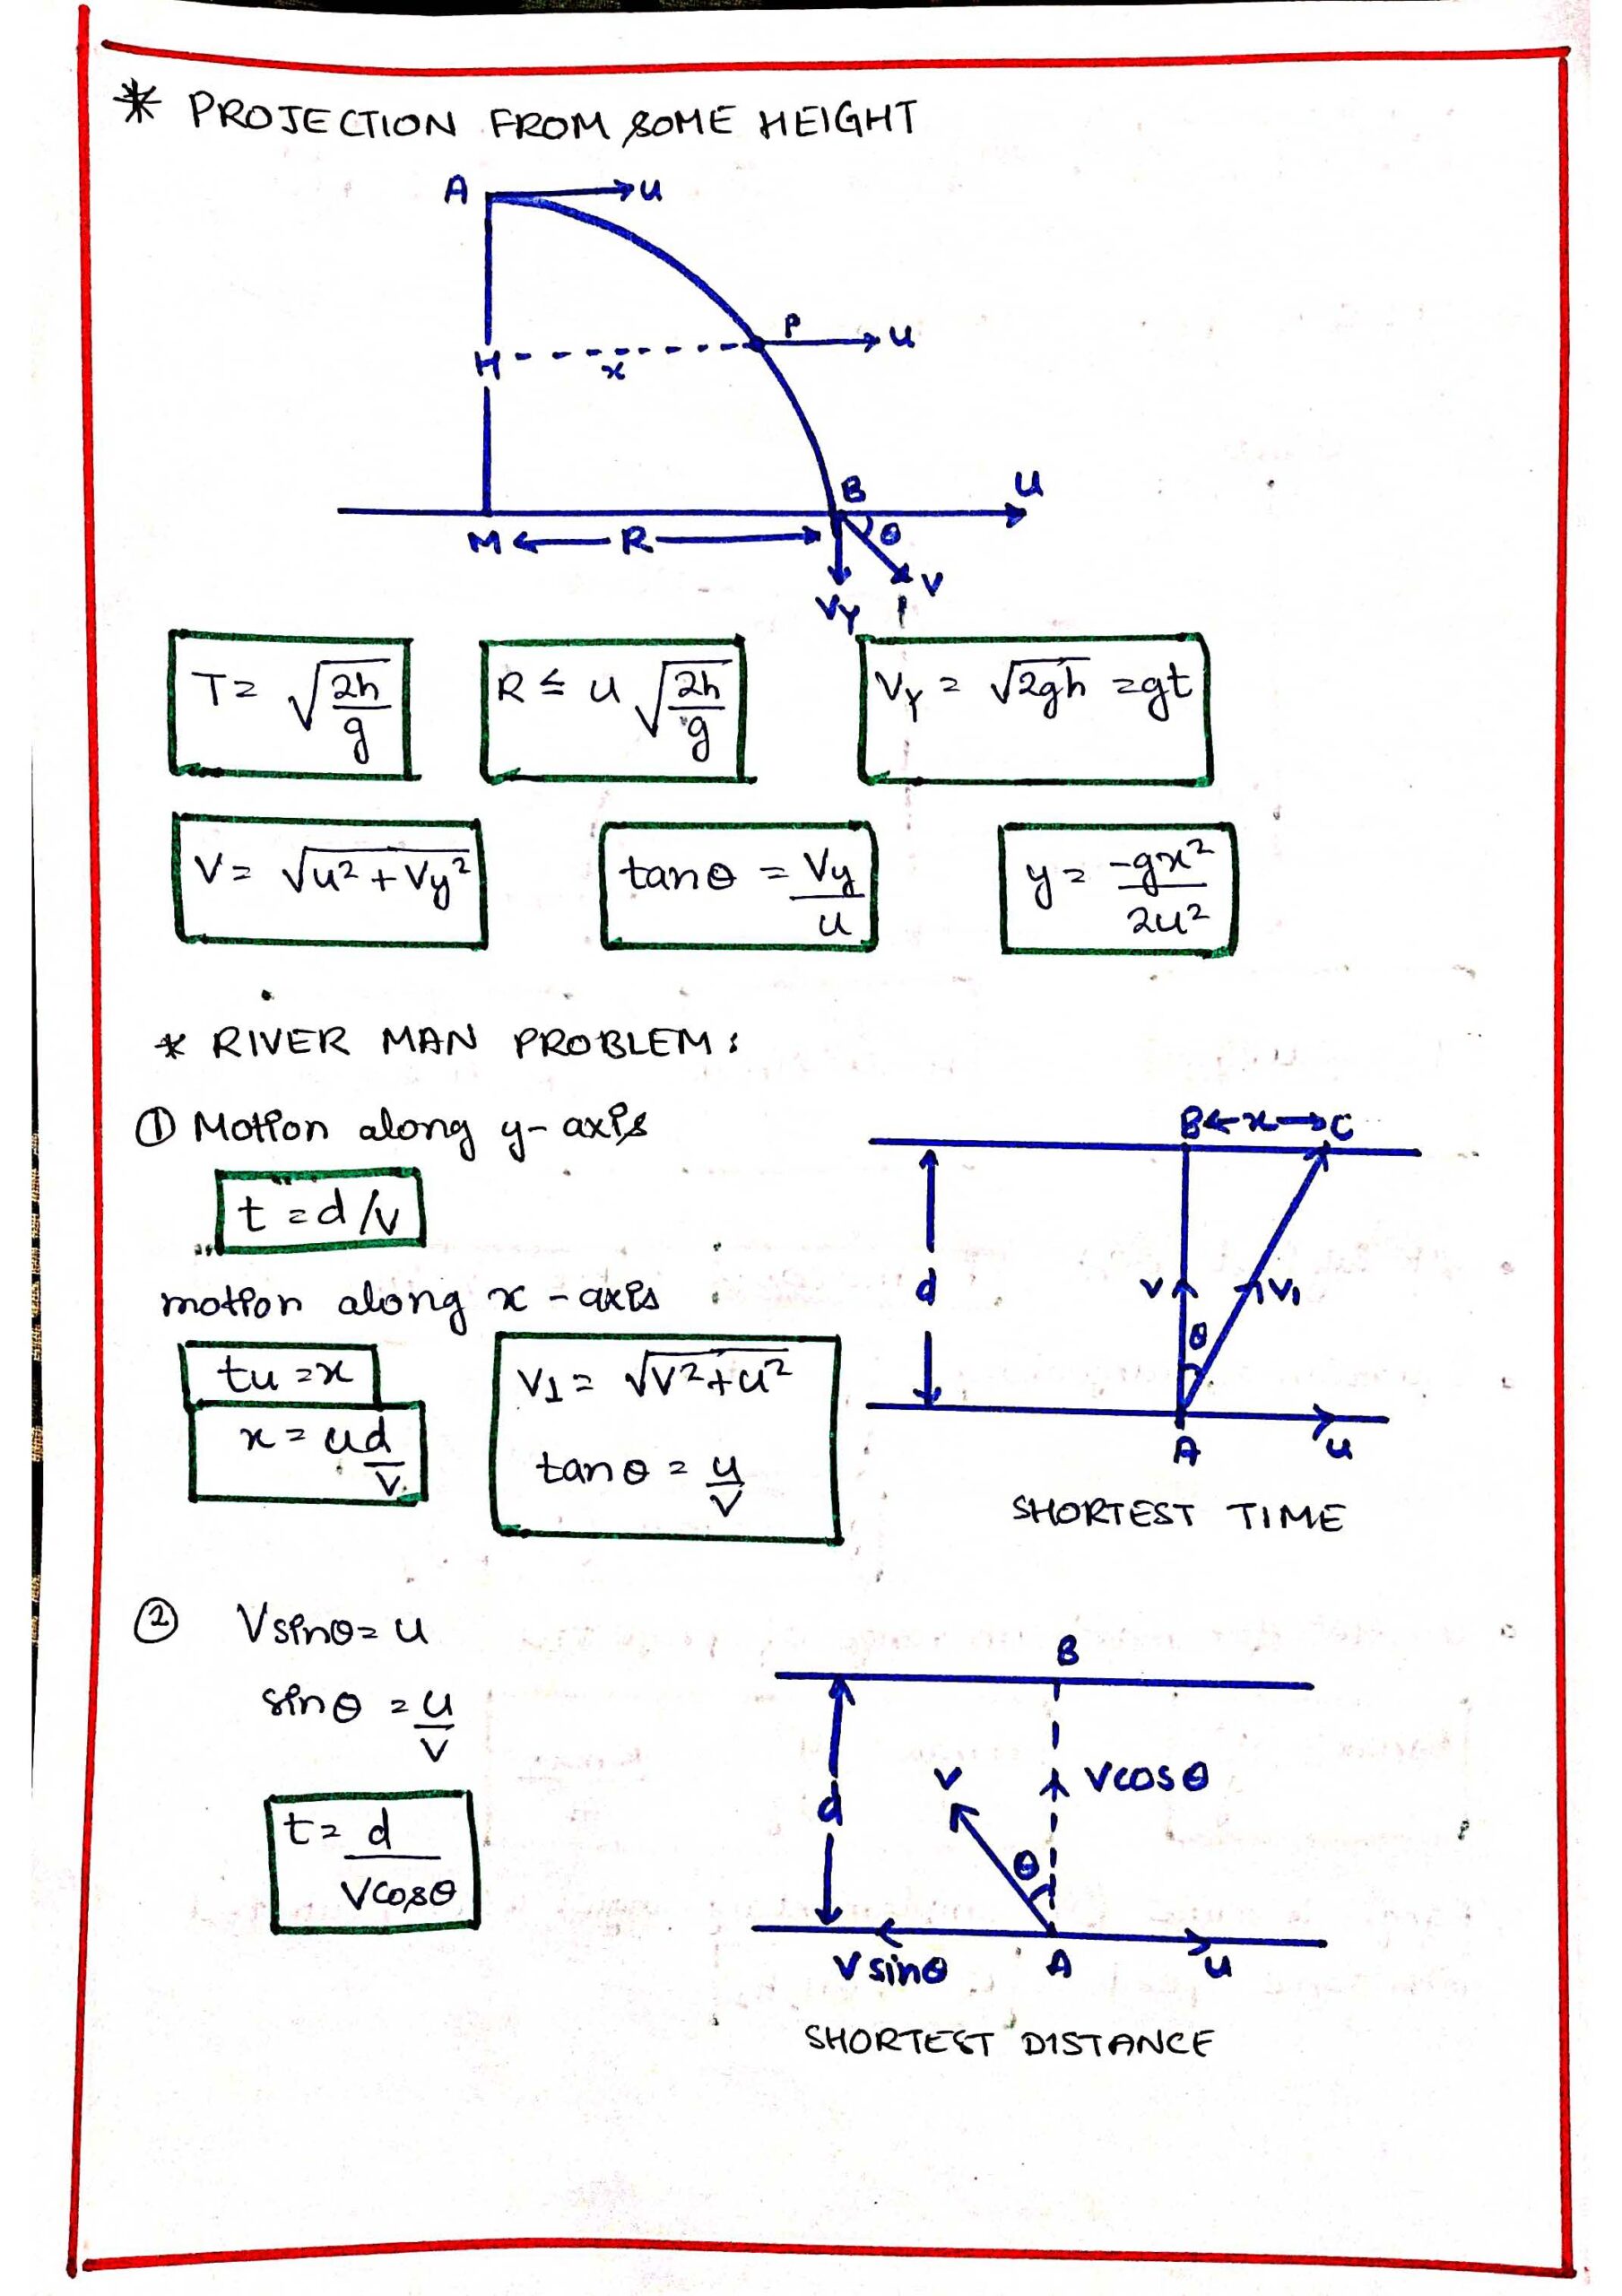 * PROJECTION FROM SOME HEIGHT
A → u
P → u
H
x
B
u
M ← R → θ
Vy V
T = √(2h/g)
R ≤ u √(2h/g)
Vy = √2gh = gt
V = √u² + Vy²
tanθ = Vy/u
y = -gx²/2u²
* RIVER MAN PROBLEM:
① Motion along y-axis
B ← x → C
t = d/v
d
v
V₁
θ
motion along x-axis
tu = x
x = ud/v
V₁ = √V² + u²
tanθ = u/v
A
u
SHORTEST TIME
② Vsinθ = u
sinθ = u/v
t = d/Vcosθ
B
d
v
Vcosθ
θ
Vsinθ
A
u
SHORTEST DISTANCE